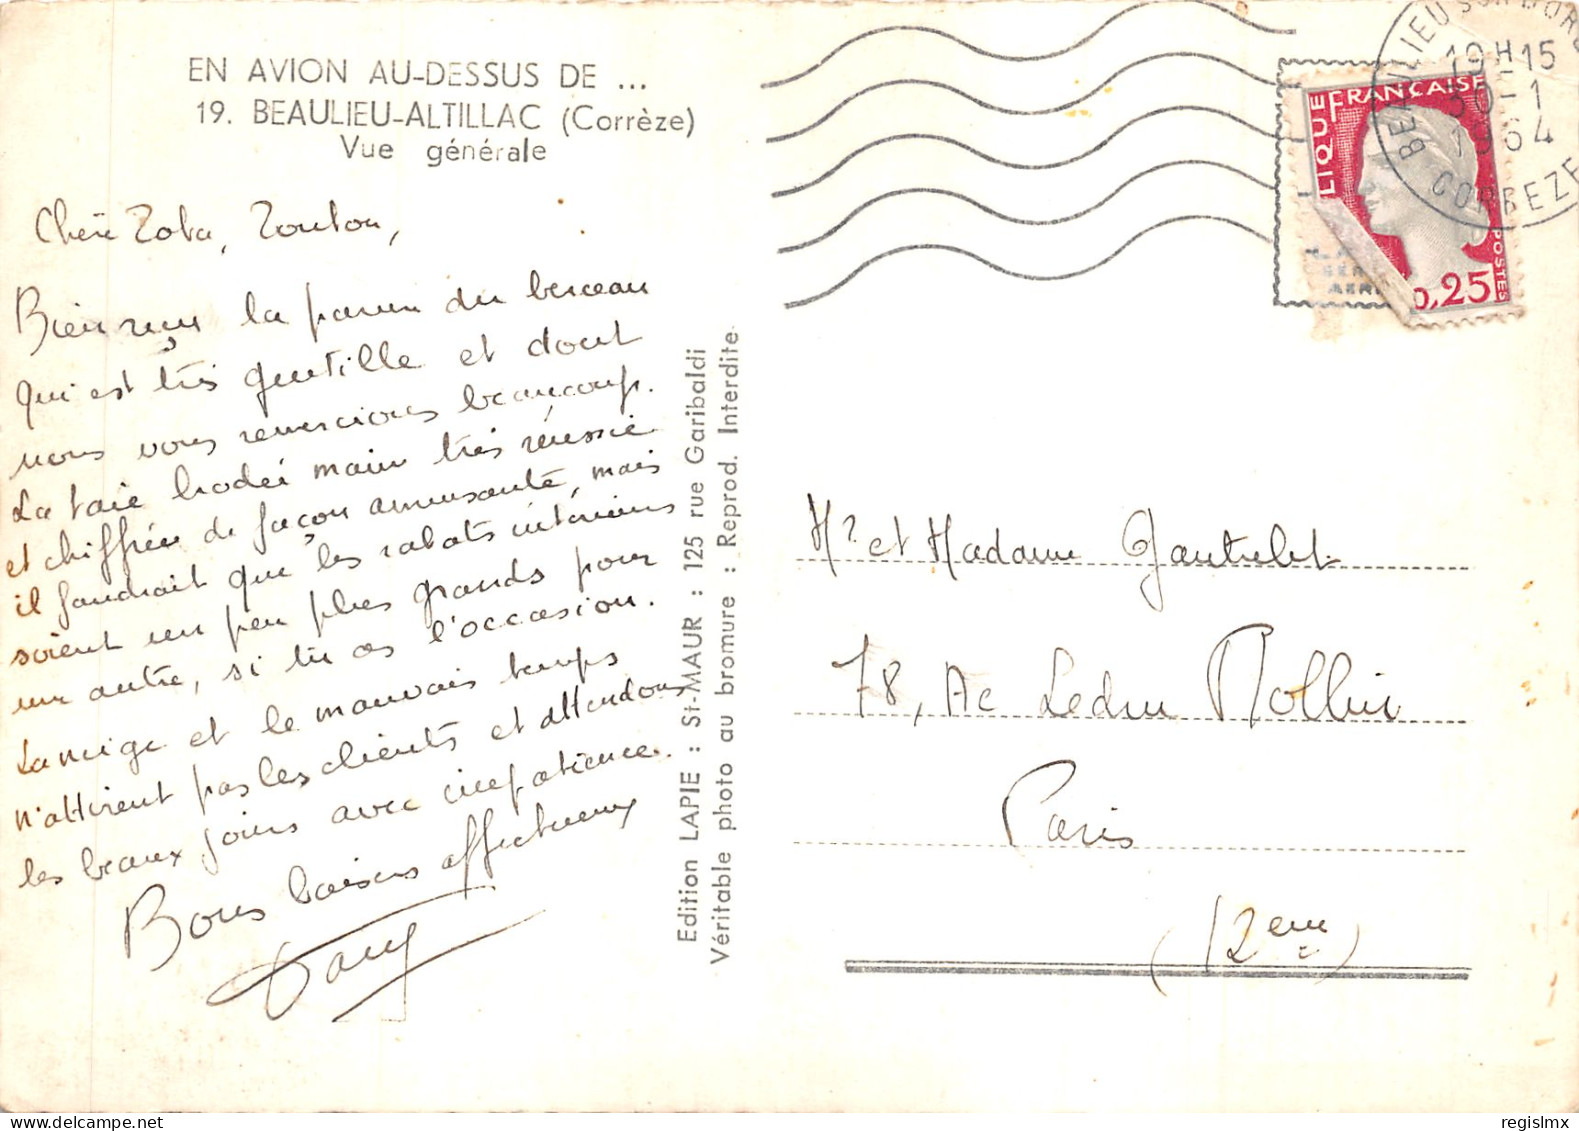 EN AVION AU-DESSUS DE ...
19. BEAULIEU-ALTILLAC (Corrèze)
Vue générale
Bien reçu la parure du berceau
qui est très gentille et dont
nous vous remercions beaucoup.
La taie brodée main très réussie
et chiffrée de façon amusante, mais
il faudrait que les rabats intérieurs
soient un peu plus grands pour
une autre, si tu as l'occasion.
La neige et le mauvais temps
n'attirent pas les clients et attendons
les beaux jours avec impatience.
Bons baisers affectueux
Edition LAPIE : St-MAUR : 125 rue Garibaldi
Véritable photo au bromure : Reprod. Interdite
BEAULIEU SUR DOR
19H15
30-1
1964
CORREZE
LIQUE FRANÇAISE
POSTES
0,25
Mr et Madame Gautrelet
78, Av Ledru Rollin
Paris
(12eme)
regislmx
delcampe.net